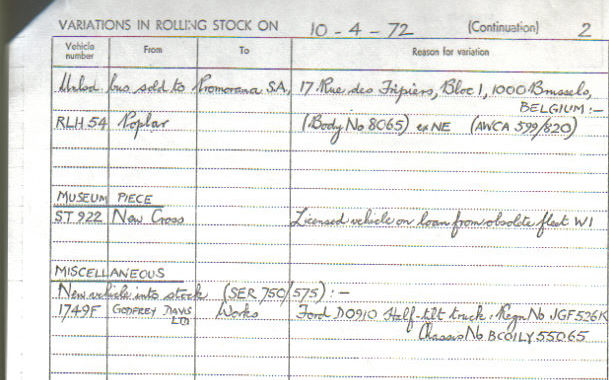 VARIATIONS IN ROLLING STOCK ON 10-4-72 (Continuation) 2
Vehicle number From To Reason for variation
Unlsd bus sold to Promorama S.A, 17 Rue des Fripiers, Bloc 1, 1000 Brussels,
BELGIUM:-
RLH 54 Poplar (Body No 8065) ex NE (AWCA 599/820)
MUSEUM PIECE
ST 922 New Cross Licensed vehicle on loan from obsolete fleet W1
MISCELLANEOUS
New vehicle into stock (SER 750/575):-
1749F GODFREY DAVIS LTD Works Ford D0910 Half-tilt truck. Regn No JGF526K
Chassis No BCO1LY55065